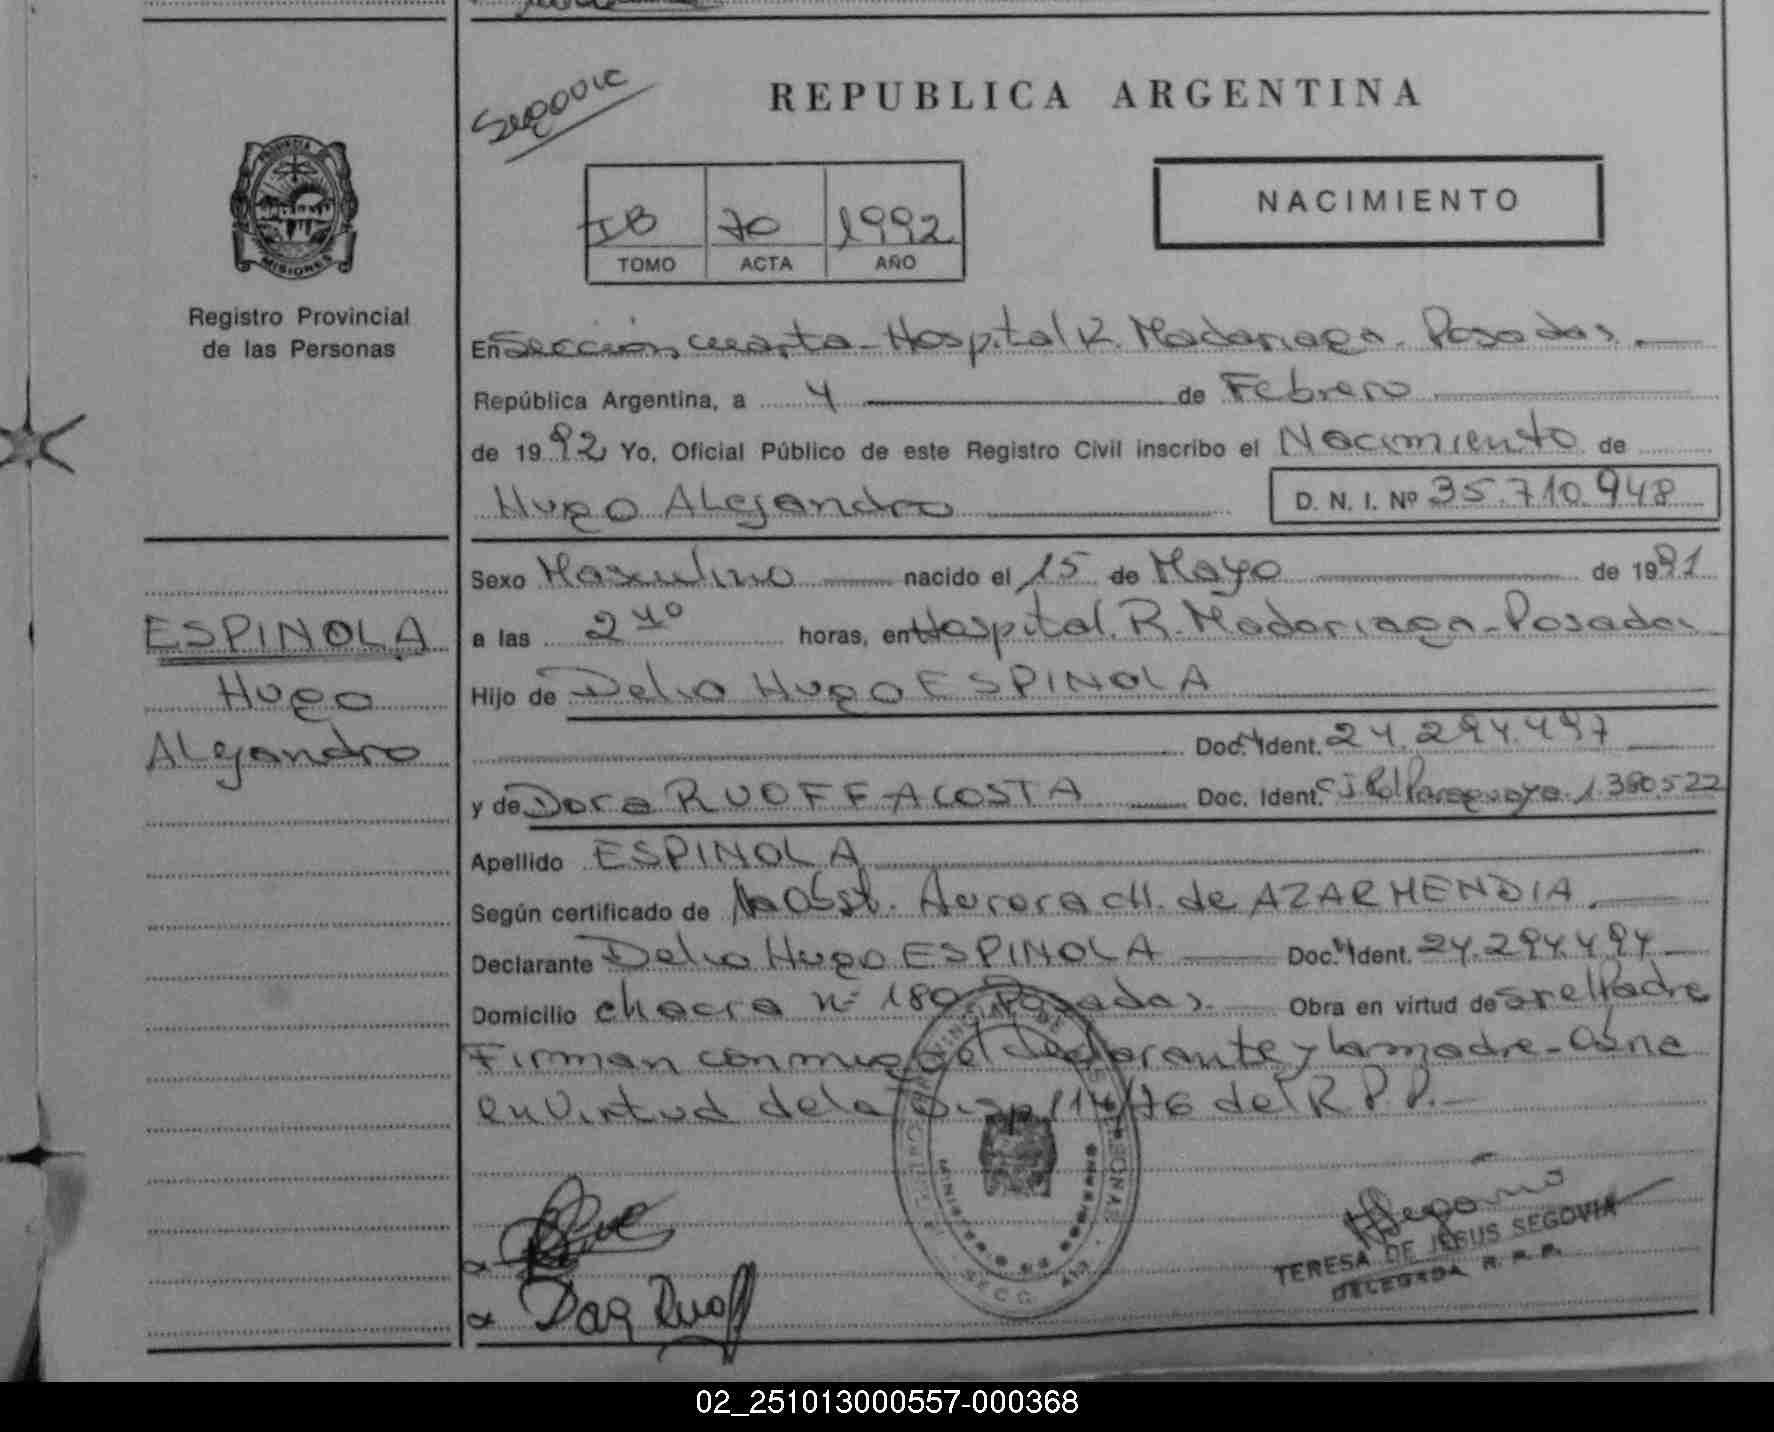 Segovia
REPUBLICA ARGENTINA
IB 70 1992
TOMO ACTA AÑO
NACIMIENTO
PROVINCIA
MISIONES
Registro Provincial
de las Personas
En Sección cuarta - Hospital R. Madariaga. Posadas.
República Argentina, a 4 de Febrero
de 1992 Yo, Oficial Público de este Registro Civil inscribo el Nacimiento de
Hugo Alejandro D. N. I. Nº 35.710.948
ESPINOLA
Hugo
Alejandro
Sexo Masculino nacido el 15 de Mayo de 1991
a las 2 40 horas, en Hospital R. Madariaga - Posadas
Hijo de Delio Hugo ESPINOLA
Doc. Ident. 24.294.497
y de Dora RUOFF ACOSTA Doc. Ident. C.I. Pol Paraguaya 1.380.522
Apellido ESPINOLA
Según certificado de la Obst. Aurora CH. de AZARMENDIA.
Declarante Delio Hugo ESPINOLA Doc. Ident. 24.294.497
Domicilio chacra nº 180 Posadas Obra en virtud de ser el Padre
Firman conmigo el declarante y la madre -
en virtud de la Disp 114/76 del R.P.P.
TERESA DE JESUS SEGOVIA
DELEGADA R. P. P.
Ruoff
02_251013000557-000368